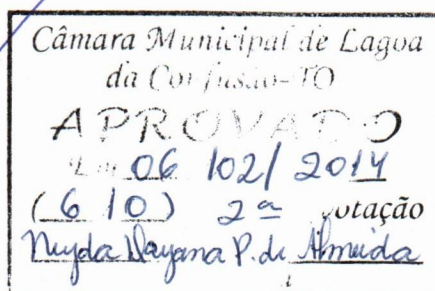 Câmara Municipal de Lagoa
da Confusão-TO
APROVADO
Em 06 102/ 2014
( 6 10 ) 2ª votação
Dayana P. de Almeida